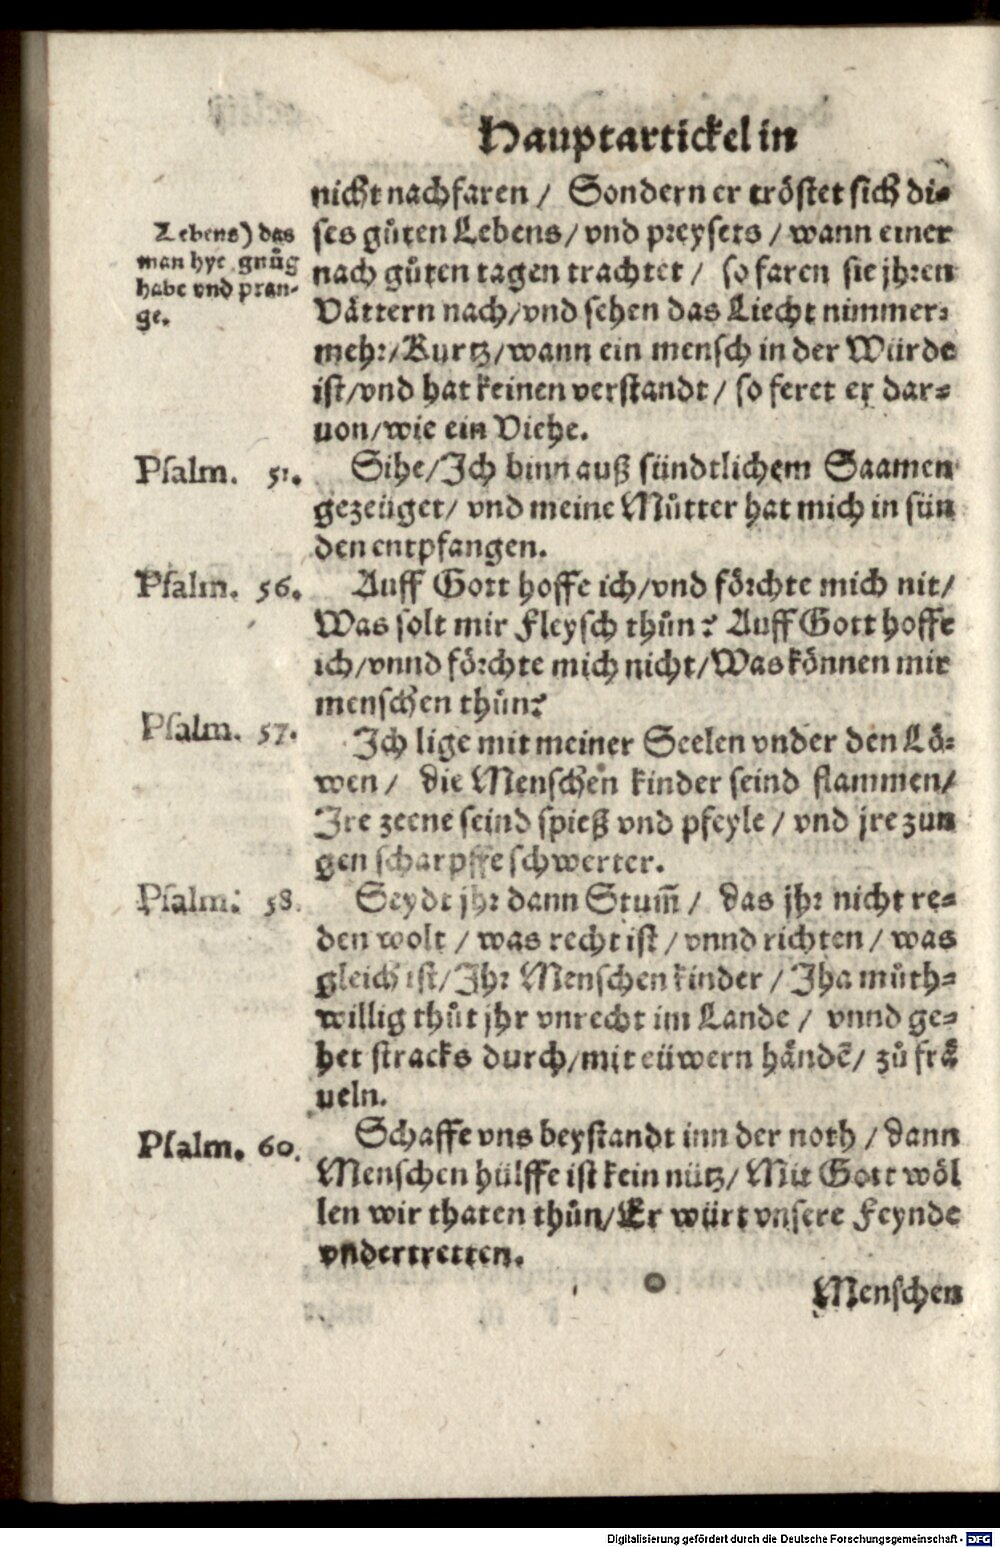 Hauptartickel in
nicht nachfaren / Sondern er tröstet sich di-
ses gůten Lebens / vnd preysets / wann einer
nach gůten tagen trachtet / so faren sie jhren
Vättern nach / vnd sehen das Liecht nimmer-
mehr / Kurtz / wann ein mensch in der Würde
ist / vnd hat keinen verstandt / so feret er dar-
uon / wie ein Viehe.
Lebens) das
man hye gnůg
habe vnd pran-
ge.
Psalm. 51.
Sihe / Ich binn auß sündtlichem Saamen
gezeüget / vnd meine Můtter hat mich in sün
den entpfangen.
Psalm. 56.
Auff Gott hoffe ich / vnd förchte mich nit /
Was solt mir Fleysch thůn? Auff Gott hoffe
ich / vnnd förchte mich nicht / Was können mir
menschen thůn?
Psalm. 57.
Ich lige mit meiner Seelen vnder den Lö-
wen / die Menschen kinder seind flammen /
Ire zeene seind spieß vnd pfeyle / vnd jre zun
gen scharpffe schwerter.
Psalm. 58.
Seydt jhr dann Stum̃ / das jhr nicht re-
den wolt / was recht ist / vnnd richten / was
gleich ist / Ihr Menschen kinder / Iha můth-
willig thůt jhr vnrecht im Lande / vnnd ge-
het stracks durch / mit eüwern händẽ / zů frä
ueln.
Psalm. 60.
Schaffe vns beystandt inn der noth / dann
Menschen hülffe ist kein nütz / Mit Gott wöl
len wir thaten thůn / Er würt vnsere Feynde
vndertretten.
Menschen
Digitalisierung gefördert durch die Deutsche Forschungsgemeinschaft - DFG